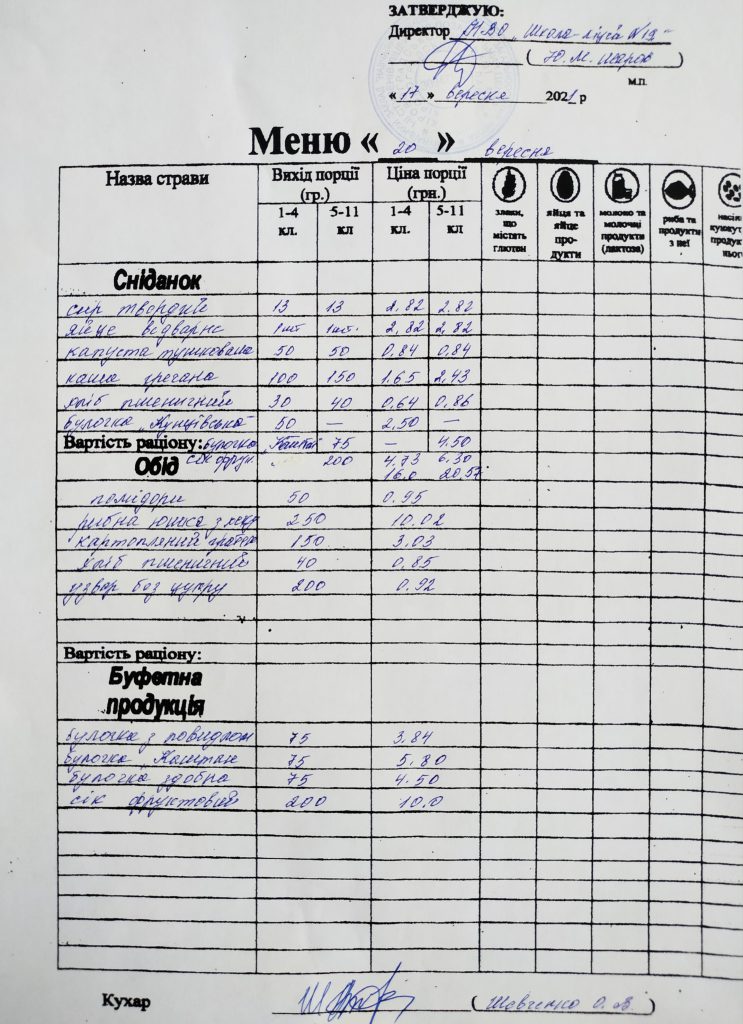 ЗАТВЕРДЖУЮ:
Директор НВО „Школа-ліцей №19"
( Ю.М. )
м.п.
« 17 » вересня 2021 р
Меню « 20 » вересня
Назва страви Вихід порції (гр.) Ціна порції (грн.) злаки, що містять глютен яйця та яйце продукти молоко та молочні продукти (лактоза) риба та продукти з неї
1-4 кл. 5-11 кл 1-4 кл. 5-11 кл
Сніданок
сир твердий 13 13 2,82 2,82
яйце відварне 1шт 1шт. 2,82 2,82
капуста тушкована 50 50 0,84 0,84
каша гречана 100 150 1.65 2,43
хліб пшеничний 30 40 0,64 0,86
булочка „Кунцівська" 50 — 2,50 —
Вартість раціону: булочка 75 — 4.50
Обід сік фрук 200 4,73 6.30
16.0 20,57
помідори 50 0.95
рибна юшка з 250 10.02
картопляний 150 3,03
хліб пшеничний 40 0.85
узвар без цукру 200 0.92
Вартість раціону:
Буфетна
продукція
булочка з повидлом 75 3,84
булочка „Каштан 75 5,80
булочка здобна 75 4.50
сік фруктовий 200 10.0
Кухар ( Шевченко О.В. )